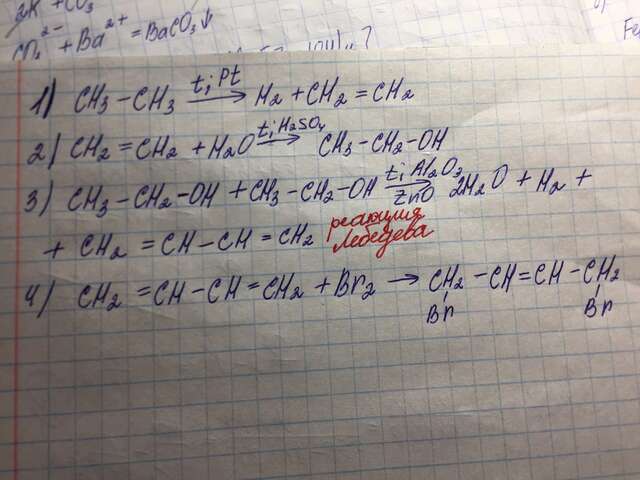 2K⁺ + CO₃²⁻ + Ba²⁺ = BaCO₃↓
1) CH₃ – CH₃ t, Pt → H₂ + CH₂ = CH₂
2) CH₂ = CH₂ + H₂O t, H₂SO₄ → CH₃ – CH₂ – OH
3) CH₃ – CH₂ – OH + CH₃ – CH₂ – OH t, Al₂O₃ ZnO → 2H₂O + H₂ +
+ CH₂ = CH – CH = CH₂ реакция Лебедева
4) CH₂ = CH – CH = CH₂ + Br₂ → CH₂ – CH = CH – CH₂
Br Br